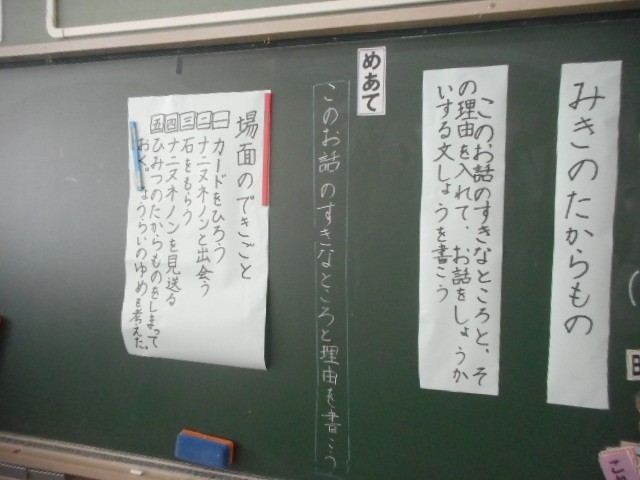 みきのたからもの
このお話のすきなところと、そ
の理由を入れて、お話をしょうか
いする文しょうを書こう
めあて
このお話のすきなところと理由を書こう
場面のできごと
一 カードをひろう
二 ナニヌネノンと出会う
三 石をもらう
四 ナニヌネノンを見送る
五 ひみつのたからものをしまって
おく。しょうらいのゆめを考えた。